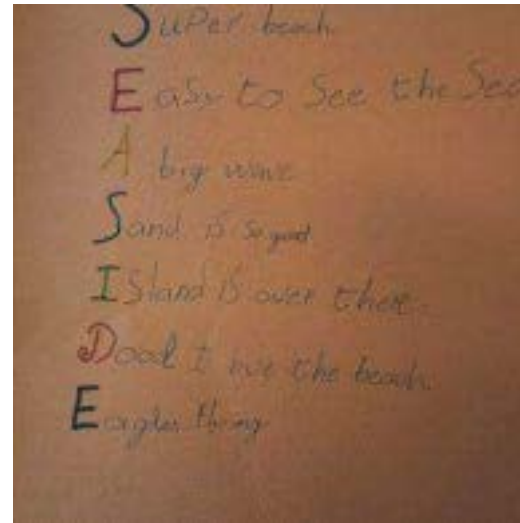 Super beach
Easy to See the Sea
A big wave
Sand is so good
Island is over there.
Dood I love the beach
Eagles